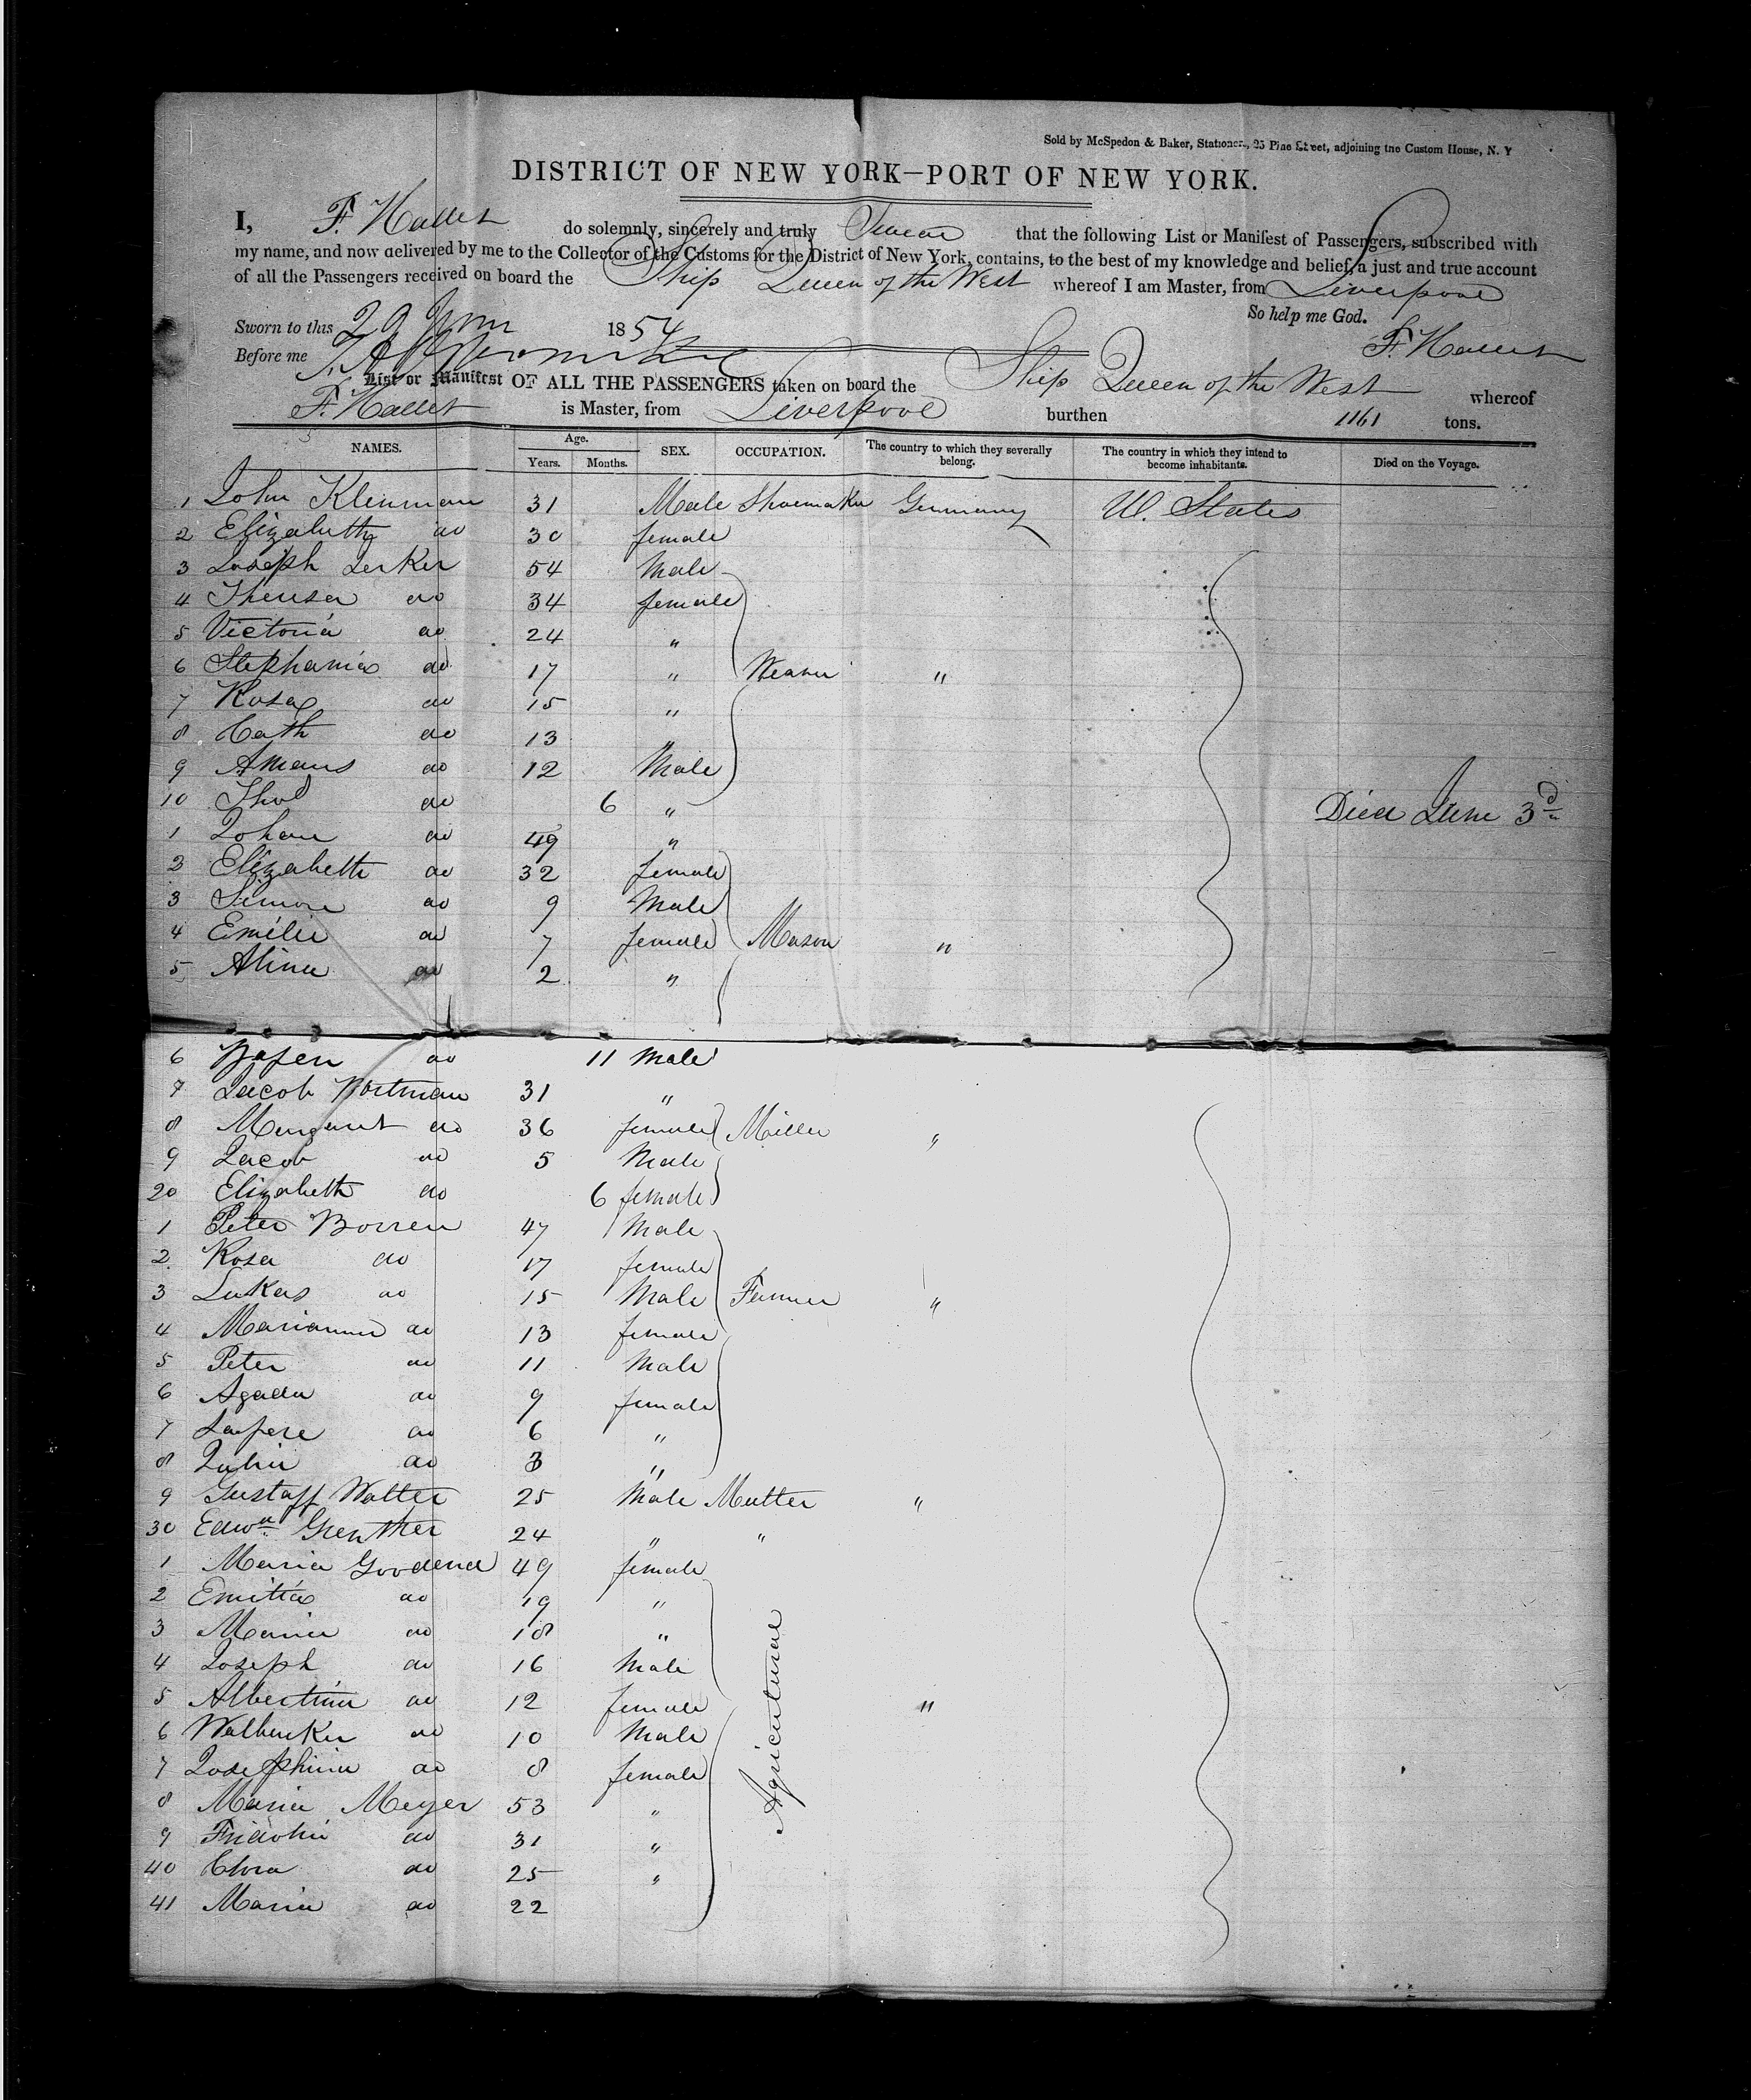 Sold by McSpedon & Baker, Stationers, 25 Pine Street, adjoining the Custom House, N. Y
DISTRICT OF NEW YORK—PORT OF NEW YORK.
I, F. Hallet do solemnly, sincerely and truly Swear that the following List or Manifest of Passengers, subscribed with
my name, and now delivered by me to the Collector of the Customs for the District of New York, contains, to the best of my knowledge and belief, a just and true account
of all the Passengers received on board the Ship Queen of the West whereof I am Master, from Liverpool
So help me God.
Sworn to this 29 June 1854 F. Hallet
Before me
List or Manifest OF ALL THE PASSENGERS taken on board the Ship Queen of the West whereof
F. Hallet is Master, from Liverpool burthen 1161 tons.
NAMES. Age. Years. Months. SEX. OCCUPATION. The country to which they severally belong. The country in which they intend to become inhabitants. Died on the Voyage.
1 John Klenman 31 Male Shoemaker Germany U. States
2 Elizabeth do 30 female
3 Joseph Jerker 54 Male
4 Theresa do 34 female
5 Victoria do 24 "
6 Stephania do 17 " Weaver "
7 Rosa do 15 "
8 Cath do 13 "
9 Amans do 12 Male
10 do 6 " Died June 3d
1 Johan do 49 "
2 Elizabeth do 32 female
3 Simon do 9 Male
4 Emilie do 7 female Mason "
5 Alina do 2 "
6 do 11 Male
7 Jacob Portman 31 "
8 Margaret do 36 female Miller "
9 Jacob do 5 Male
20 Elizabeth do 6 female
1 Peter Borren 47 Male
2 Rosa do 17 female
3 Lukas do 15 Male Farmer "
4 Marianna do 13 female
5 Peter do 11 Male
6 Agada do 9 female
7 do 6 "
8 Julia do 3 "
9 Gustaff Walter 25 Male Mutter "
30 Edwd Grenther 24 " "
1 Maria Goodend 49 female
2 Emilia do 19 "
3 Maria do 18 "
4 Joseph do 16 Male
5 Albertina do 12 female Agricultural "
6 do 10 Male
7 Josephina do 8 female
8 Maria Meyer 53 "
9 Fridolin do 31 "
40 Clora do 25 "
41 Maria do 22